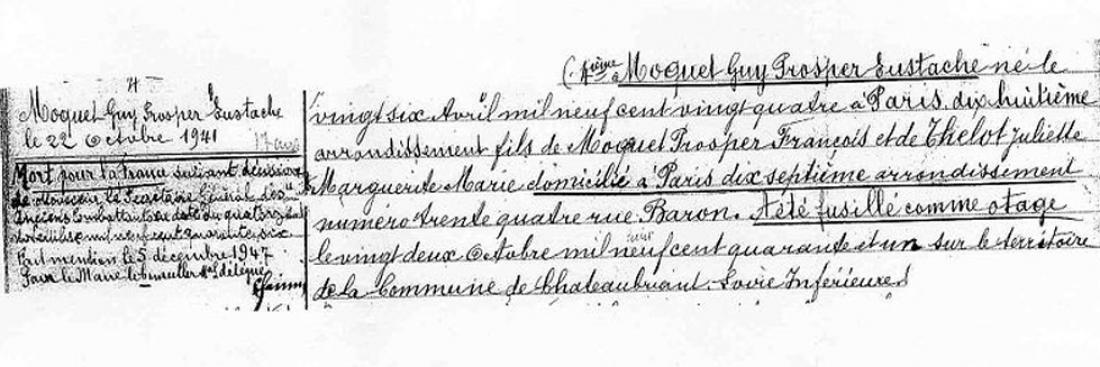 4
Moquet Guy Prosper Eustache
le 22 Octobre 1941
17 ans
Mort pour la France suivant décision
de Monsieur le Secrétaire Général des
Anciens Combattants en date du quatorze
mil neuf cent quarante six
Fait mention le 5 décembre 1947
Pour le Maire le Conseiller Mal délégué
(4ième Moquet Guy Prosper Eustache né le
vingt six Avril mil neuf cent vingt quatre à Paris dix huitième
arrondissement fils de Moquet Prosper François et de Thelot Juliette
Marguerite Marie domicilié à Paris dix septième arrondissement
numéro trente quatre rue Baron. A été fusillé comme otage
le vingt deux Octobre mil neuf cent quarante et un sur le territoire
de la Commune de Chateaubriant. Loire Inférieure